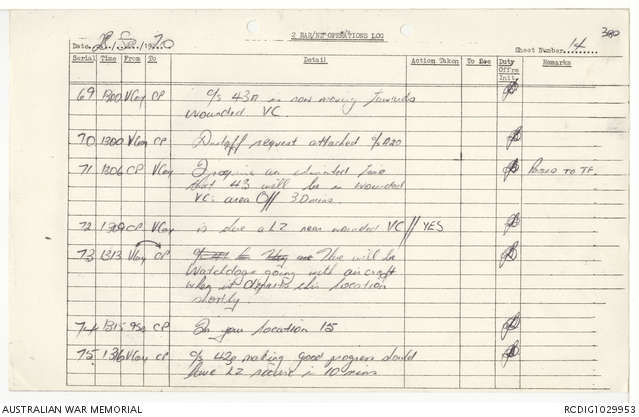 380
2 RAR/NZ OPERATIONS LOG
Date 19 70 Sheet Number 14
Serial Time From To Detail Action Taken To Dec Duty Offrs Init Remarks
69 1300 VCoy CP c/s 43A is now moving towards
wounded VC.
70 1300 VCoy CP Dustoff request attached
71 1306 CP VCoy I require an estimated time PASSED TO TF.
that 43 will be in wounded
VC's area Off 30 mins.
72 1309 CP VCoy is there a LZ near wounded VC // YES
73 1313 VCoy CP This will be
Watchdogs going with aircraft
when it departs this location
shortly
74 1315 CP In your location 15
75 1316 VCoy CP c/s 42 making good progress should
have LZ secure in 10 mins
AUSTRALIAN WAR MEMORIAL RCDIG1029953